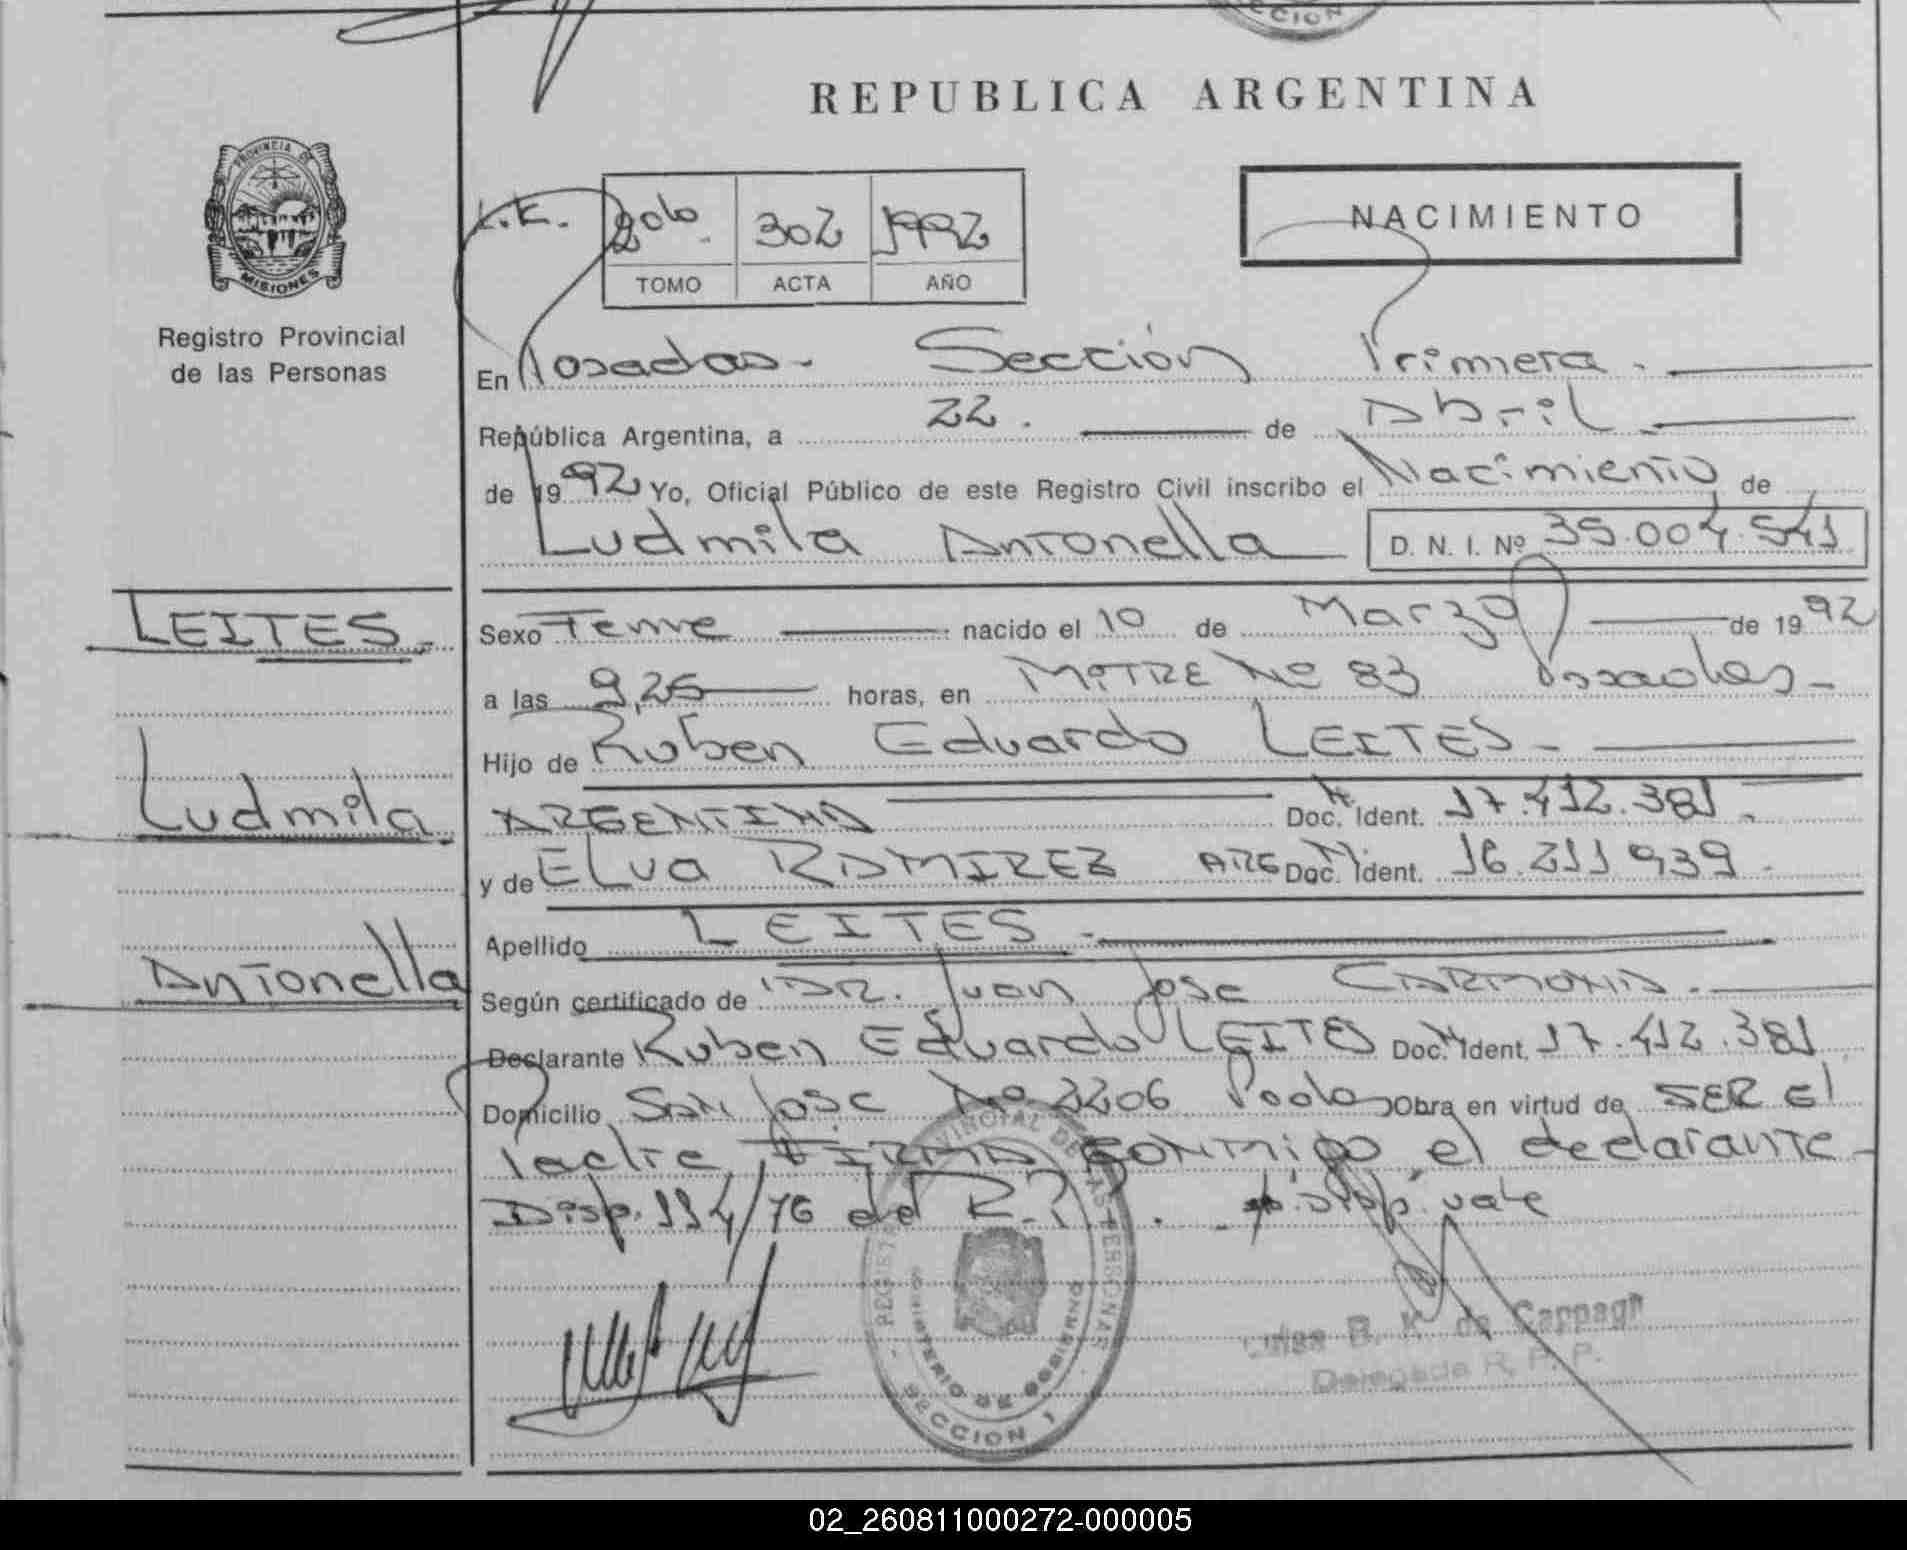 REPUBLICA ARGENTINA
PROVINCIA DE
MISIONES
Registro Provincial
de las Personas
NACIMIENTO
302 1992
TOMO ACTA AÑO
En Posadas- Sección Primera.
República Argentina, a 22. de Abril
de 1992 Yo, Oficial Público de este Registro Civil inscribo el Nacimiento de
Ludmila Antonella D. N. I. Nº 35.004.541
LEITES.
Sexo Feme nacido el 10 de Marzo de 1992
a las 9,25 horas, en MiTRE Nº 83 Posadas-
Hijo de Ruben Eduardo LEITES-
Ludmila
ARGENTINA Doc. Ident. 17.412.381.
y de ELVA RAMIREZ ARG Doc. Ident. 16.211 939.
Apellido LEITES.
Antonella
Según certificado de DR. Juan Jose CARMONA.
Declarante Ruben Eduardo LEITES Doc. Ident. 17.412.381
Domicilio San Jose Nº 2206 Pdas Obra en virtud de SER El
Padre FIRMA CONMIGO el declarante-
Disp. 114/76 del R.P. vale
REGISTRO PROVINCIAL DE LAS PERSONAS
MINISTERIO DE GOBIERNO
SECCION 1
Luisa B. K. de Cappagli
Delegada R. P. P.
02_260811000272-000005